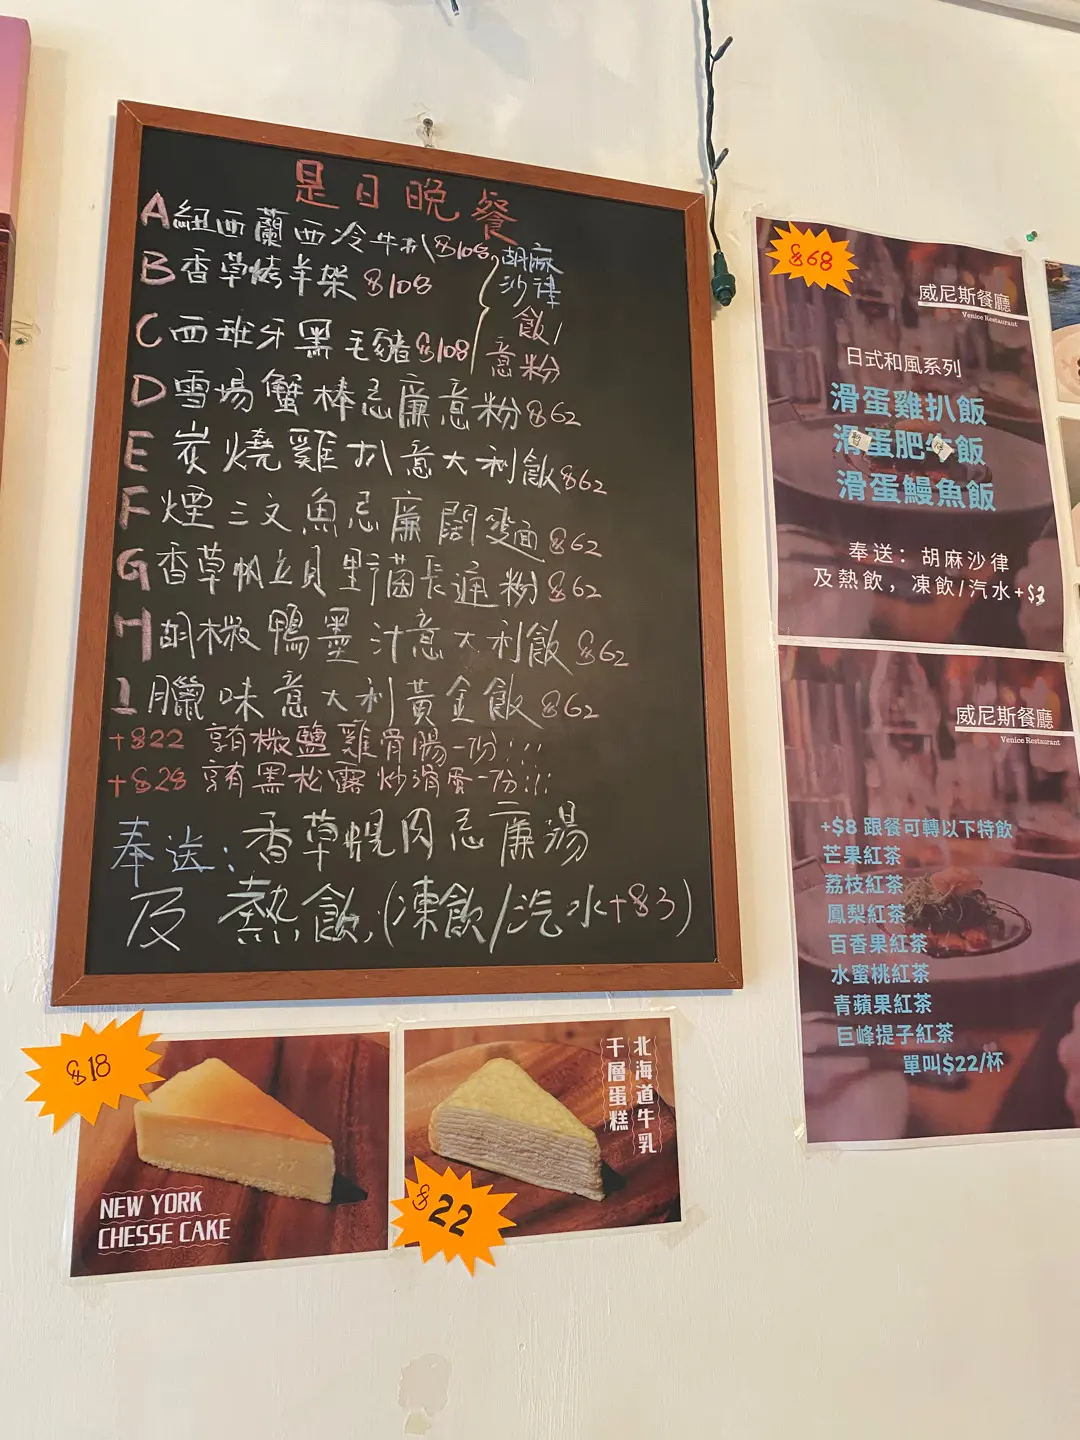 是日晚餐
A 紐西蘭西冷牛扒 $108
B 香草烤羊架 $108
C 西班牙黑毛豬 $108
胡麻
沙律
飯/
意粉
D 雪場蟹棒忌廉意粉 $62
E 炭燒雞扒意大利飯 $62
F 煙三文魚忌廉闊麵 $62
G 香草帆立貝野菌長通粉 $62
H 胡椒鴨墨汁意大利飯 $62
I 臘味意大利黃金飯 $62
+$22 享有椒鹽雞骨腸一份!!!
+$28 享有黑松露炒滑蛋一份!!!
奉送: 香草蜆肉忌廉湯
及 熱飲, (凍飲/汽水+$3)
$68
威尼斯餐廳
Venice Restaurant
日式和風系列
滑蛋雞扒飯
滑蛋肥牛飯
暫停
滑蛋鰻魚飯
奉送：胡麻沙律
及熱飲，凍飲/汽水+$3
威尼斯餐廳
Venice Restaurant
+$8 跟餐可轉以下特飲
芒果紅茶
荔枝紅茶
鳳梨紅茶
百香果紅茶
水蜜桃紅茶
青蘋果紅茶
巨峰提子紅茶
單叫$22/杯
$18
NEW YORK
CHESSE CAKE
北海道牛乳
千層蛋糕
$22